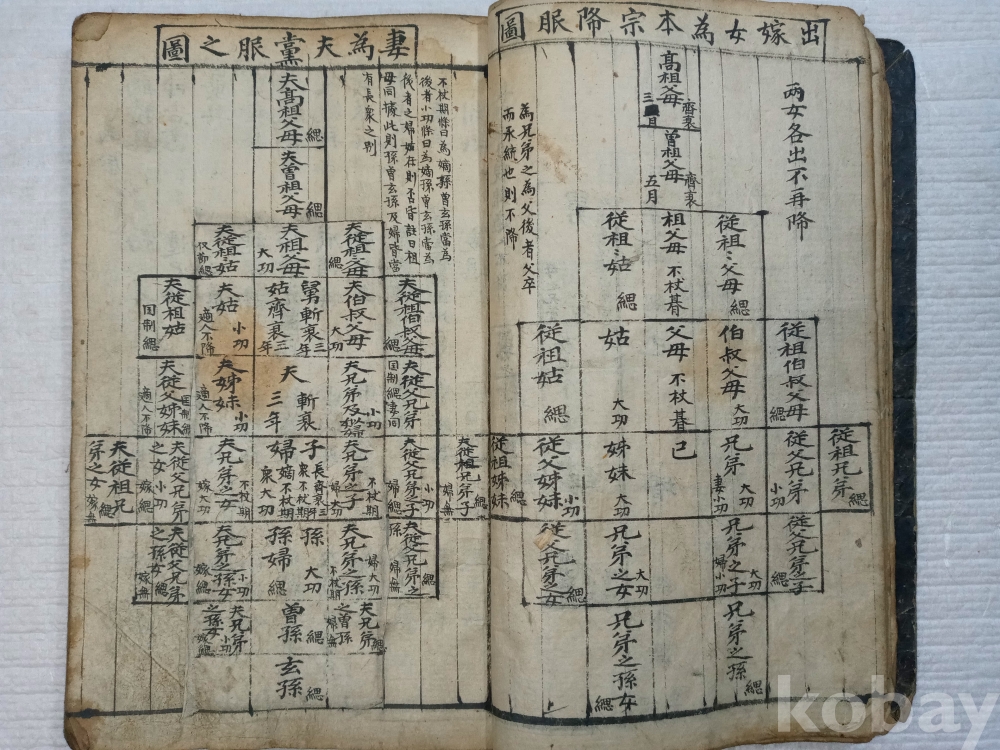 出嫁女為本宗降服圖
兩女各出不再降
高祖父母 齊衰三月
曾祖父母 齊衰五月
為兄弟之為父後者父卒
而承統也則不降
從祖〻父母 緦
祖父母 不杖朞
從祖〻姑 緦
從祖伯叔父母 緦
伯叔父母 大功
父母 不杖朞
姑 大功
從祖姑 緦
從祖兄弟 緦
從父兄弟 小功
兄弟 大功 妻小功
己
姊妹 大功
從父姊妹 小功
從祖姊妹 緦
從父兄弟之子 緦
兄弟之子 大功 婦小功
兄弟之女 大功
從父兄弟之女 緦
兄弟之孫 緦
兄弟之孫女 緦
妻為夫黨服之圖
不杖期條曰為嫡孫曾玄孫當為
後者小功條曰為嫡孫曾玄孫當為
後者之婦姑在則否皆註曰祖
母同據此則孫曾玄孫及婦皆當
有長衆之別
夫高祖父母 緦
夫曾祖父母 緦
夫從祖父母 緦
夫祖父母 大功
夫從祖姑 緦
夫從祖伯叔父母 緦
夫伯叔父母 大功
舅斬衰三年
姑齊衰三年
夫姑 小功 適人不降
夫從祖姑 国制緦
夫從父兄弟 国制緦妻同
夫兄弟及妻 小功
夫 斬衰三年
夫姊妹 小功 適人不降
夫從父姊妹 国制緦 適人不降
夫從祖兄弟子 緦 婦無
夫從父兄弟子 小功 婦緦
夫兄弟之子 不杖期 婦大功
子 長齊衰三年 衆不杖期
婦 嫡不杖期 衆大功
夫兄弟之女 不杖期 嫁大功
夫從父兄弟之女 小功 嫁緦
夫從祖兄弟之女 緦 嫁無
夫從父兄弟之孫 緦 婦無
孫 大功
孫婦 緦
夫兄弟之孫女 小功 嫁緦
夫從父兄弟之孫女 緦 嫁無
夫兄弟之曾孫 緦 婦無
曾孫 緦
玄孫 緦
kobay